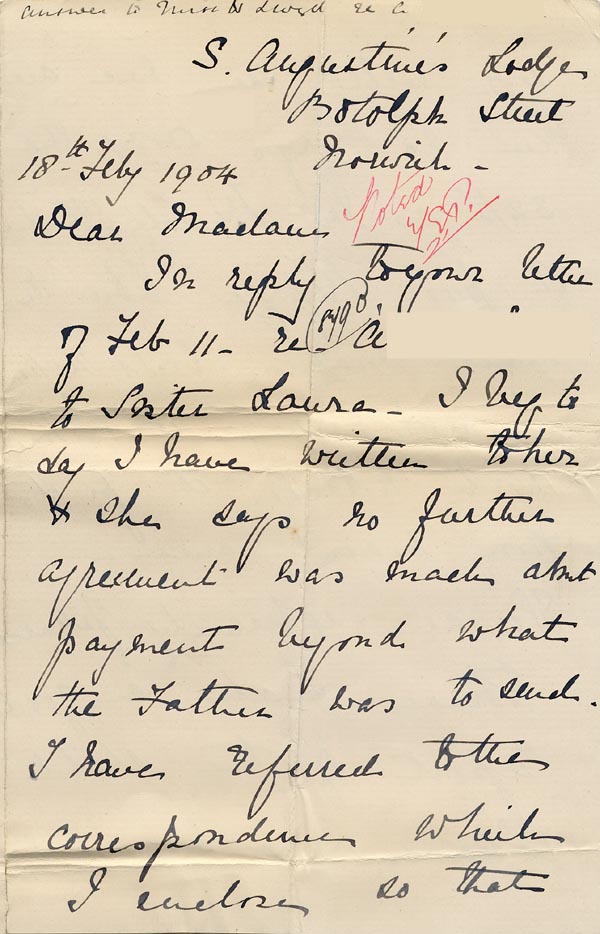 answer to Miss Lloyd re
S. Augustine's Lodge
Botolph Street
Norwich -
18th Feby 1904
Noted
Dear Madam
In reply to your letter
of Feb 11 - re
to Sister Laura - I beg to
say I have written to her
& she says no further
agreement was made about
payment beyond what
the Father was to send.
I have referred to the
correspondence which
I enclose so that